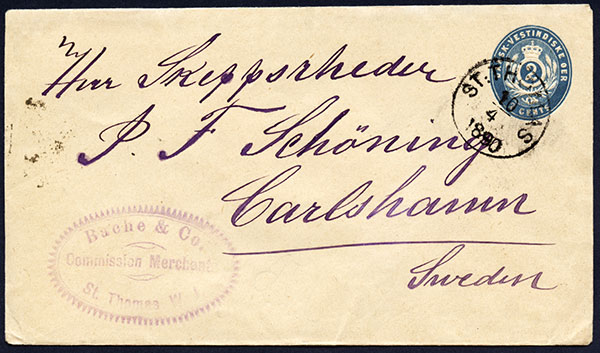 Herr Skeppsrheder
P. F. Schöning
Carlshamn
Sweden
SK-VESTINDISKE ØER
2
CENTS
ST. THOMAS
10
4
1890
Bache & Co.
Commission Merchants
St. Thomas W.